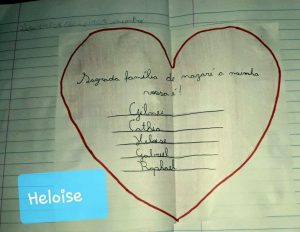 Sagrada família de nazaré a minha
nossa é!
Gilnei
Cathia
Heloise
Gabriel
Raphael
Heloise